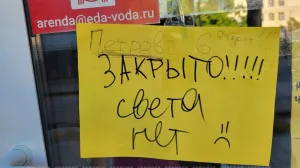 arenda@eda-voda.ru
Петрова 6
ЗАКРЫТО!!!!!
света
нет :(